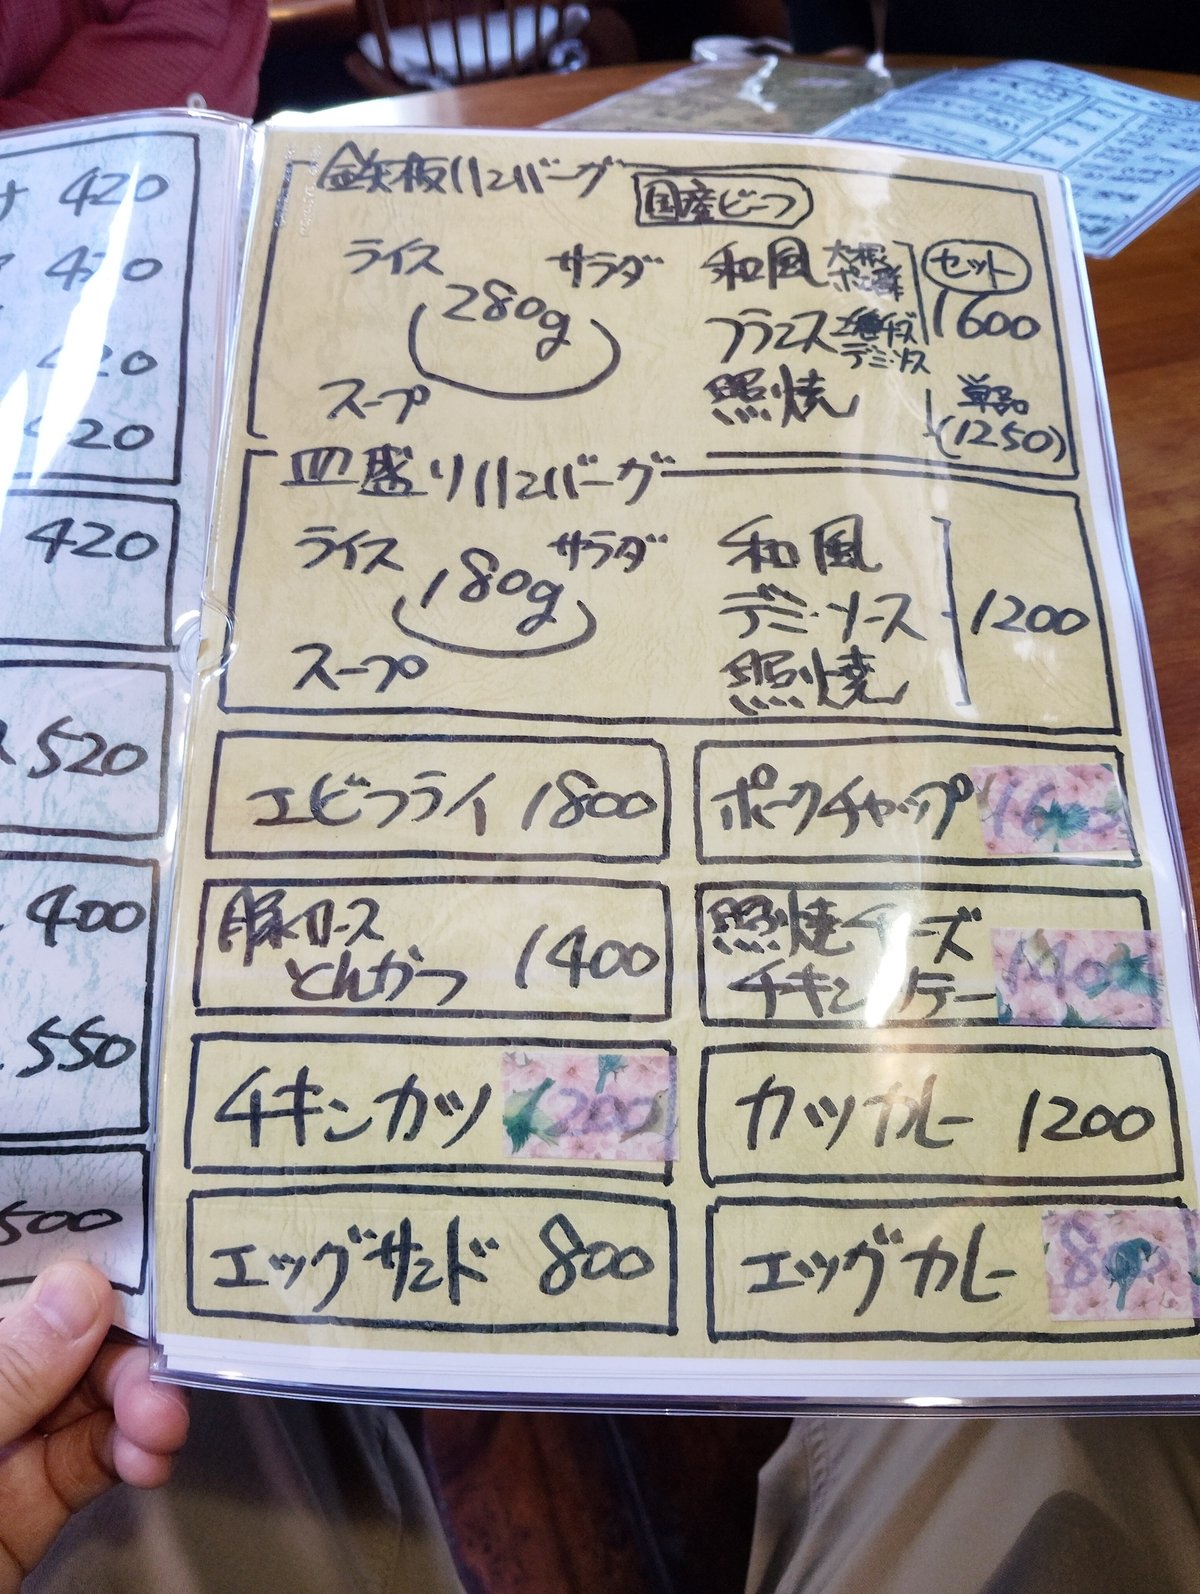 420
420
420
420
420
520
400
550
500
鉄板ハンバーグ
国産ビーフ
ライス サラダ
280g
スープ
和風 大根 ポン酢
フランス チーズ デミ・ソース
照焼
セット
1600
単品
(1250)
皿盛りハンバーグ
ライス サラダ
180g
スープ
和風
デミ・ソース
照焼
1200
エビフライ 1800
ポークチャップ
豚ロース
とんかつ 1400
照焼チーズ
チキンソテー
チキンカツ 1200
カツカレー 1200
エッグサンド 800
エッグカレー